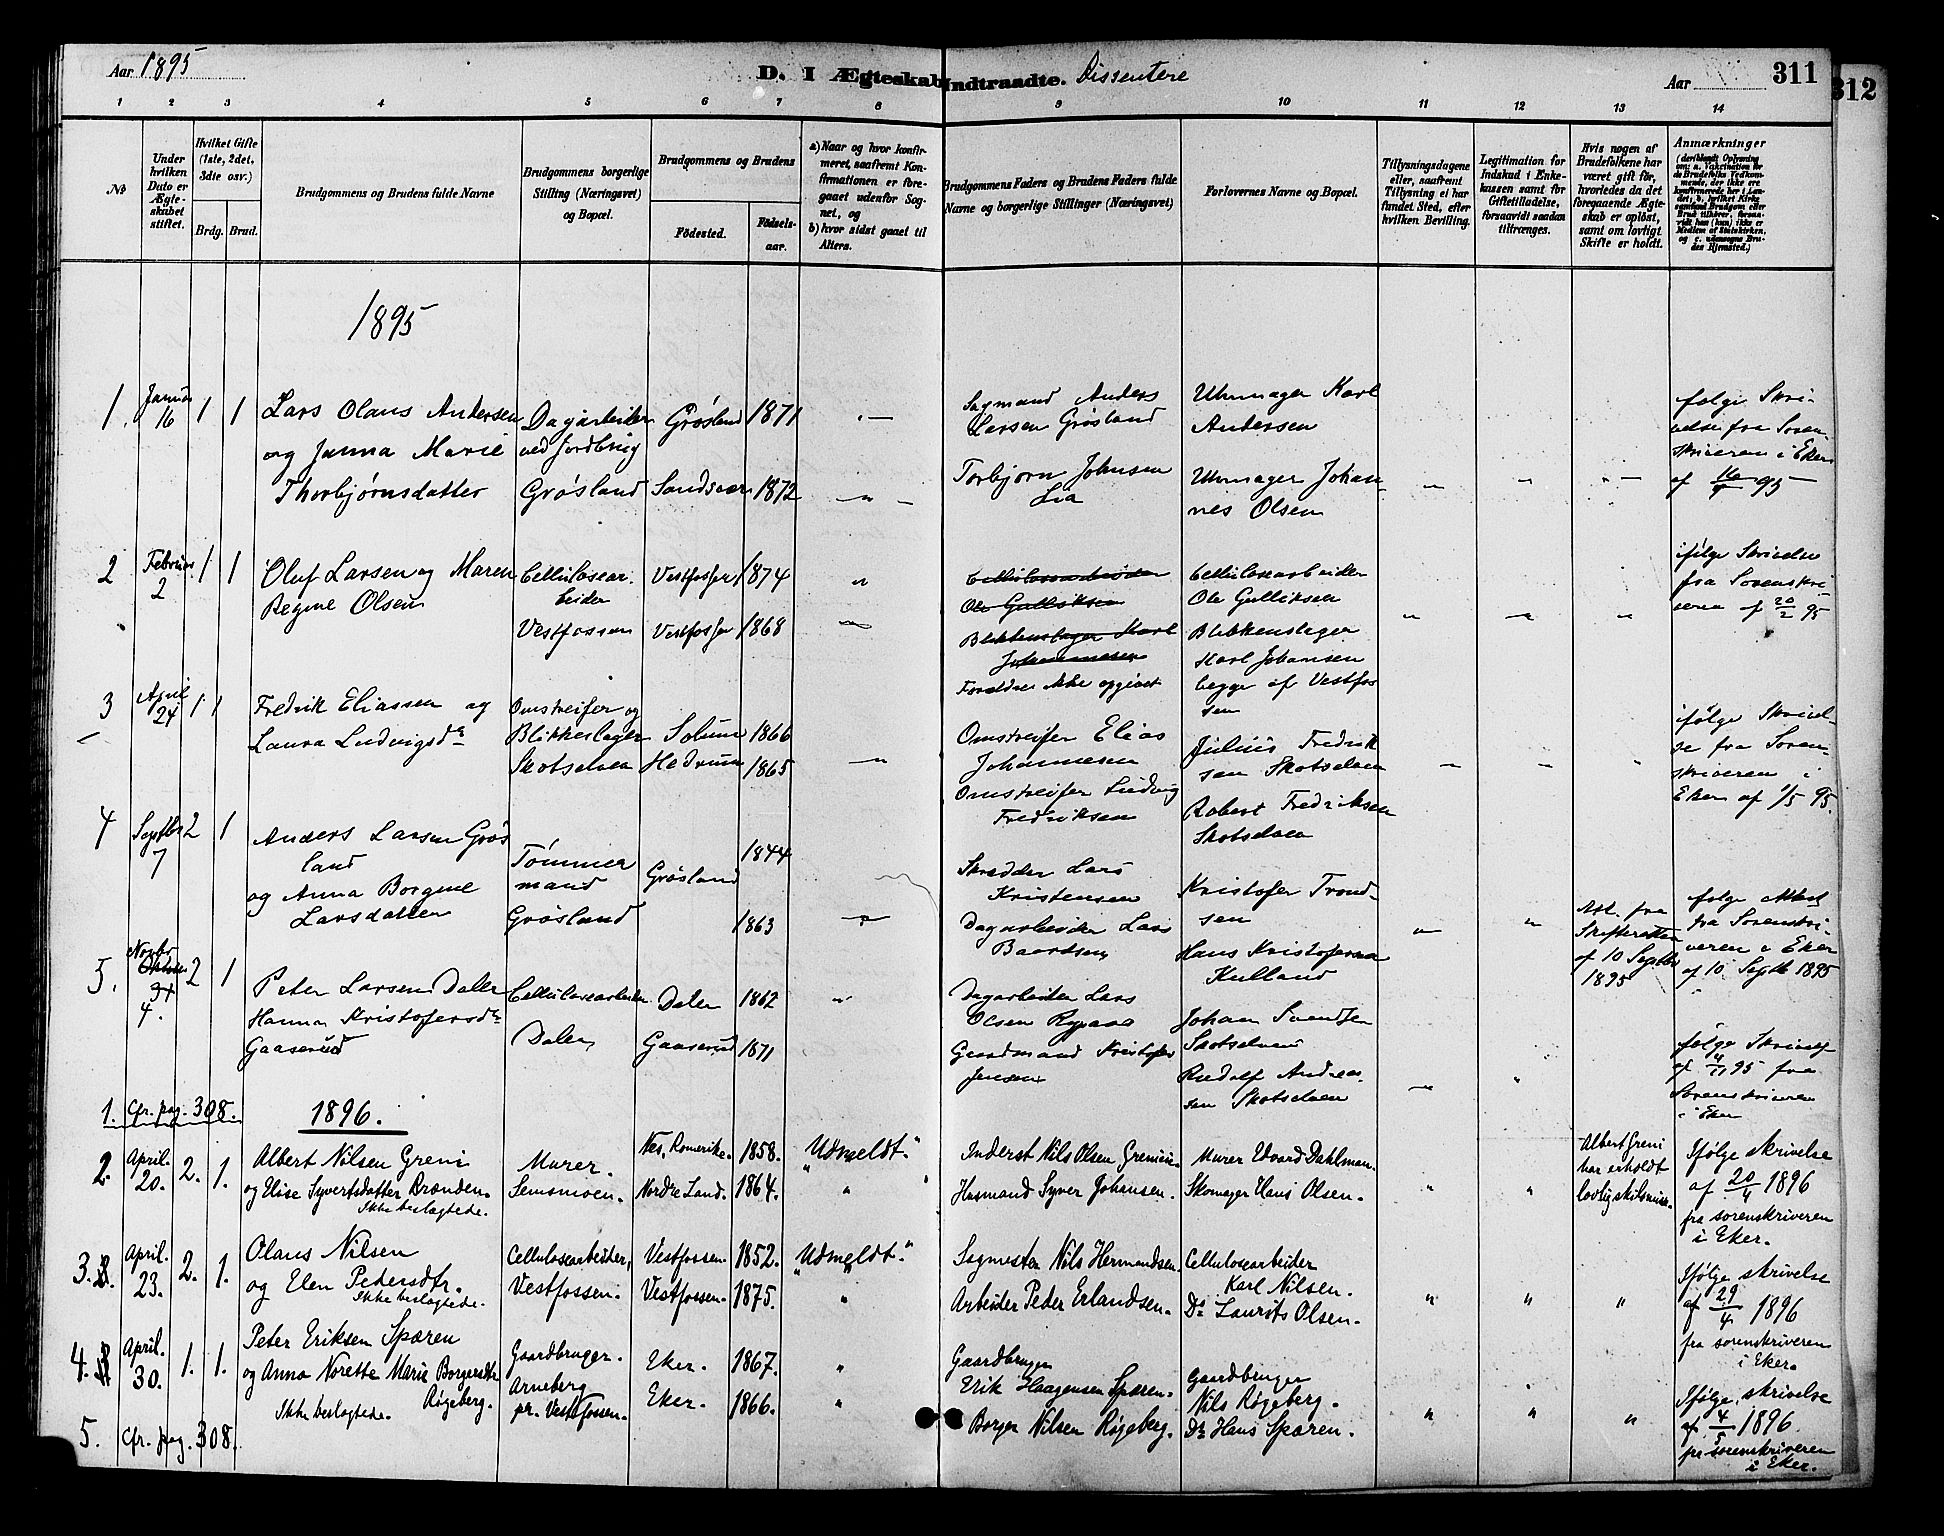 Aar 1895
D. I Ægteskab Indtraadte. Dissentere
Aar 311
312
1 2 3 4 5 6 7 8 9 10 11 12 13 14
No
Under hvilken Dato er Ægteskabet stiftet.
Hvilket Gifte (1ste, 2det, 3die osv.)
Brdg. Brud.
Brudgommens og Brudens fulde Navne
Brudgommens borgerlige Stilling (Næringsvei) og Bopæl.
Brudgommens og Brudens
Födested. Födselsaar.
a) Naar og hvor konfirmeret, saafremt Konfirmationen er foregaaet udenfor Sognet, og
b) hvor sidst gaaet til Alters.
Brudgommens Faders og Brudens Faders fulde Navne og borgerlige Stillinger (Næringsvei)
Forlovernes Navne og Bopæl.
Tillysningsdagene eller, saafremt Tillysning ei har fundet Sted, efter hvilken Bevilling.
Legitimation for Indskud i Enkekassen samt for Giftetilladelse, forsaavidt saadan tiltrænges.
Hvis nogen af Brudefolkene har været gift för, hvorledes da det foregaaende Ægteskab er oplöst, samt om lovligt Skifte er holdt.
Anmærkninger
(deriblandt Oplysning om: a. Vakcination for de Brudefolks Vedkommende, der ikke ere konfirmerede her i Landet; b. hvilket Kirkesamfund Brudgom eller Brud tilhörer, forsaavidt han (hun) ikke er Medlem af Statskirken, og c. udensogns Brudes Hjemsted.)
1895
1. Januar 16 1 1
Lars Olaus Andersen
og Janna Marie
Thorbjørnsdatter
Dagarbeider
ved Jordbrug
Grøsland
Grøsland 1871
Sandsvær 1872
Sagmand Anders
Larsen Grøsland
Torbjørn Johnsen
Lia
Uhrmager Karl
Andersen
Uhrmager Johan-
nes Olsen
følge Skri-
velse fra Soren-
skriveren i Eker
af 95
2 Februar 2 1 1
Oluf Larsen og Maren
Regine Olsen
Cellulosear-
beider
Vestfossen
Vestfossen 1874
Vestfossen 1868
Cellulosearbeider
Ole Gulliksen
Blikkenslager Karl
Johannesen
Forældre ikke opgivet
Cellulosearbeider
Ole Gulliksen
Blikkenslager
Karl Johansen
begge af Vestfos
sen
ifølge Skrivelse
fra Sorenskri-
veren af 20/2 95
3 April 24 1 1
Fredrik Eliassen og
Laura Ludvigsdr
Omstreifer og
Blikkeslager
Skotselven
Solum 1866
Hedrum 1865
Omstreifer Elias
Johannesen
Omstreifer Ludvig
Fredriksen
Julius Fredrik
sen Skotselven
Robert Fredriksen
Skotselven
ifølge Skrivel-
se fra Soren-
skriveren i
Eker af 1/5 95
4 Septbr 7 2 1
Anders Larsen Grøs
land
og Anna Borgine
Larsdatter
Tømmer
mand
Grøsland
Grøsland 1844
1863
Skrædder Lars
Kristensen
Dagarbeider Lars
Baardsen
Kristofer Trond-
sen
Hans Kristofersen
Kulland
Att. fra
Skifteretten
af 10 Septbr
1895
følge Attest
fra Sorenskri-
veren i Eker
af 10 Septb 1895
5. Novbr Oktober 31 4. 2 1
Peter Larsen Dalen
Hanna Kristofersdr
Gaaserud
Cellulosearbeider
Dalen
Dalen 1862
Gaaserud 1871
Dagarbeider Lars
Olsen
Gaardmand Kristofer
Jensen
Johan Svendsen
Skotselven
Rudolf Andrea-
sen Skotselven
følge Skrivelse
af 4/11 95 fra
Sorenskriveren
i Eker
1. Cfr. pag. 308. 1896.
2. April. 20. 2. 1.
Albert Nilsen Greni
og Elise Syvertsdatter Brænden.
Ikke beslægtede.
Murer.
Semsmoen.
Nes, Romerike. 1858.
Nordre Land. 1864.
"Udmeldt."
Inderst Nils Olsen Grenie.
Husmand Syver Johansen.
Murer Edvard Dahlman.
Skomager Hans Olsen.
Albert Greni
har erholdt
lovlig skilsmisse.
Ifølge skrivelse
af 20/4 1896
fra sorenskriveren
i Eker.
3. April. 23. 2. 1.
Olaus Nilsen
og Elen Pedersdtr.
Ikke beslægtede.
Cellulosearbeider,
Vestfossen.
Vestfossen 1852.
Vestfossen 1875.
"Udmeldt."
Sagmester Nils Hermandsen.
Arbeider Peder Erlandsen.
Cellulosearbeider
Karl Nilsen.
Do Laurits Olsen.
Ifølge skrivelse
af 29/4 1896
fra sorenskriveren
i Eker.
4. April. 30. 1. 1.
Peter Eriksen Sparen
og Anna Norette Marie Borgersdtr
Røgeberg.
Ikke beslægtede.
Gaardbruger.
Arneberg
pr. Vestfossen.
Eker. 1867.
Eker. 1866.
Gaardbruger
Erik Haagensen Sparen.
Borger Nilsen Røgeberg.
Gaardbruger
Nils Røgeberg.
Do Hans Sparen.
Ifølge skrivelse
af 4/5 1896
fra sorenskriveren
i Eker.
5. Cfr. pag. 308.